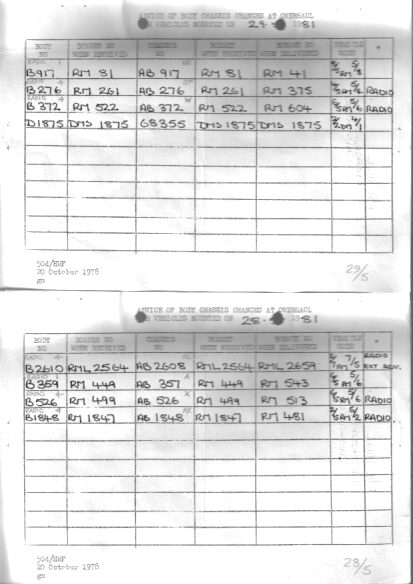 ADVICE OF BODY CHASSIS CHANGES AT OVERHAUL
VEHICLES MOUNTED ON 29- 1981
BODY NO BONNET NO WHEN RECEIVED CHASSIS NO BONNET WHEN RECEIVED BONNET NO WHEN DELIVERED VEHICLE CODE
B917 RM 81 AB 917 RM 81 RM 41 5RM
B276 RM 261 AB 276 RM 261 RM 375 5RM RADIO
B372 RM 522 AB 372 RM 522 RM 604 5RM RADIO
D1875 DMS 1875 G8355 DMS 1875 DMS 1875
504/HWF
20 October 1978
gm
29/5
ADVICE OF BODY CHASSIS CHANGES AT OVERHAUL
VEHICLES MOUNTED ON 28- 1981
BODY NO BONNET NO WHEN RECEIVED CHASSIS NO BONNET WHEN RECEIVED BONNET NO WHEN DELIVERED VEHICLE CODE
B2610 RML 2564 AB 2608 RML 2564 RML 2659 RADIO EXT ADV.
B359 RM 449 AB 357 RM 449 RM 543
B526 RM 499 AB 526 RM 499 RM 513 RADIO
B1848 RM 1847 AB 1848 RM 1847 RM 481 RADIO
504/HWF
20 October 1978
gm
28/5